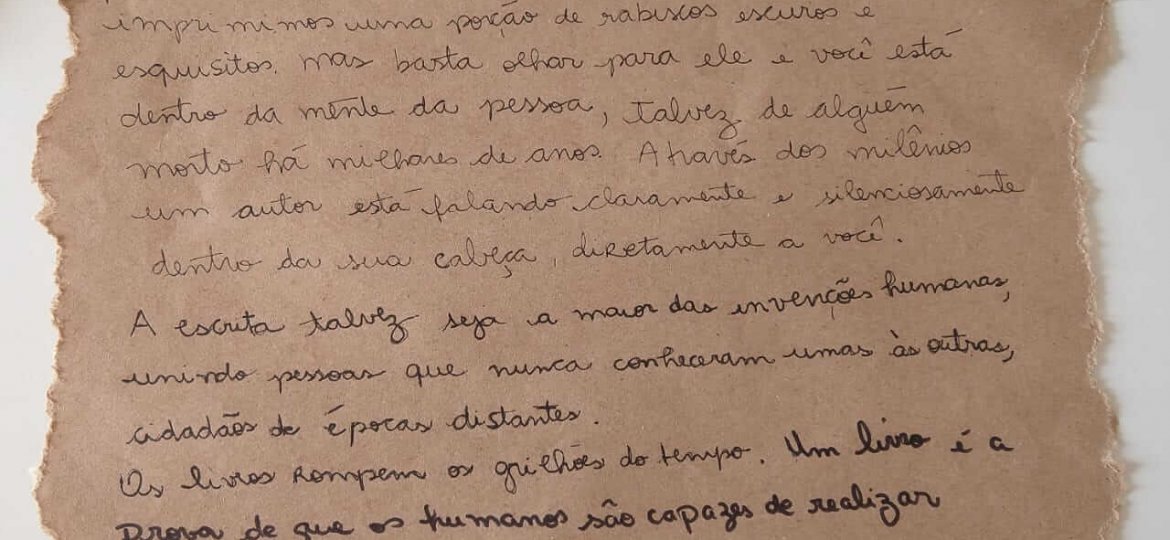 imprimimos uma porção de rabiscos escuros e
esquisitos. mas basta olhar para ele e você está
dentro da mente da pessoa, talvez de alguém
morto há milhares de anos. Através dos milênios
um autor está falando claramente e silenciosamente
dentro da sua cabeça, diretamente a você.
A escrita talvez seja a maior das invenções humanas,
unindo pessoas que nunca conheceram umas às outras,
cidadãos de épocas distantes.
Os livros rompem os grilhões do tempo. Um livro é a
prova de que os humanos são capazes de realizar